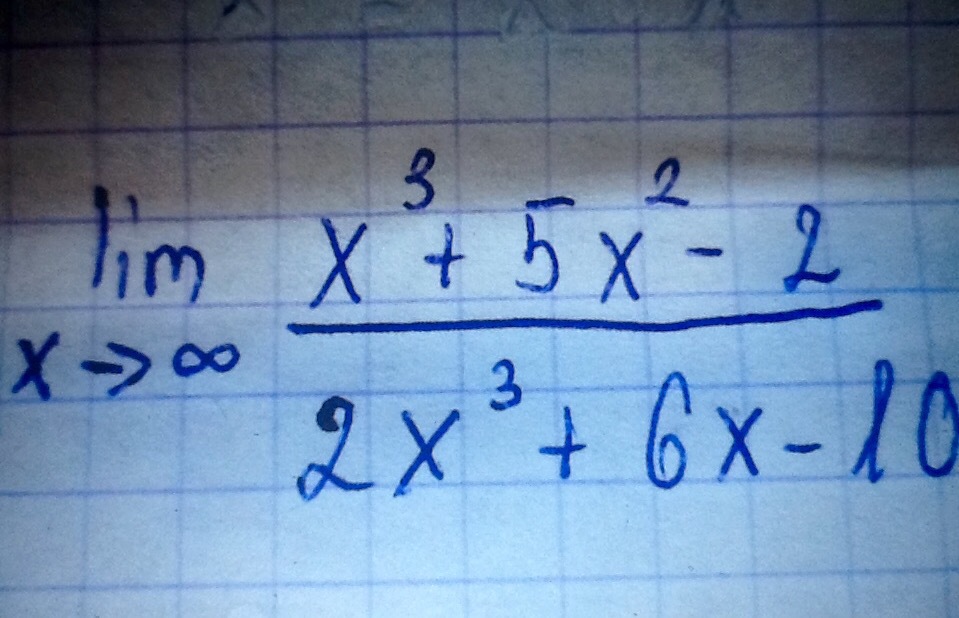 lim x→∞ (x³ + 5x² - 2) / (2x³ + 6x - 10)